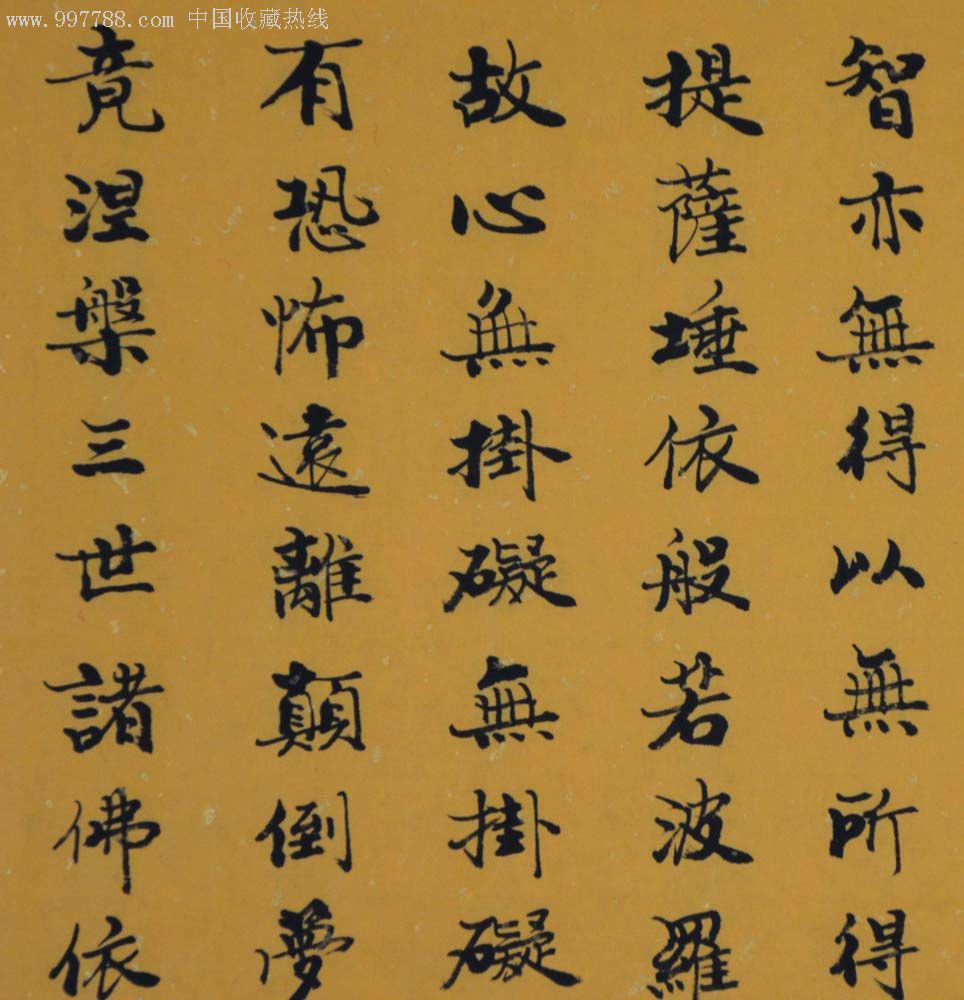 www.997788.com 中国收藏热线
智亦無得以無所得
提薩埵依般若波羅
故心無掛礙無掛礙
有恐怖遠離顛倒夢
竟涅槃三世諸佛依